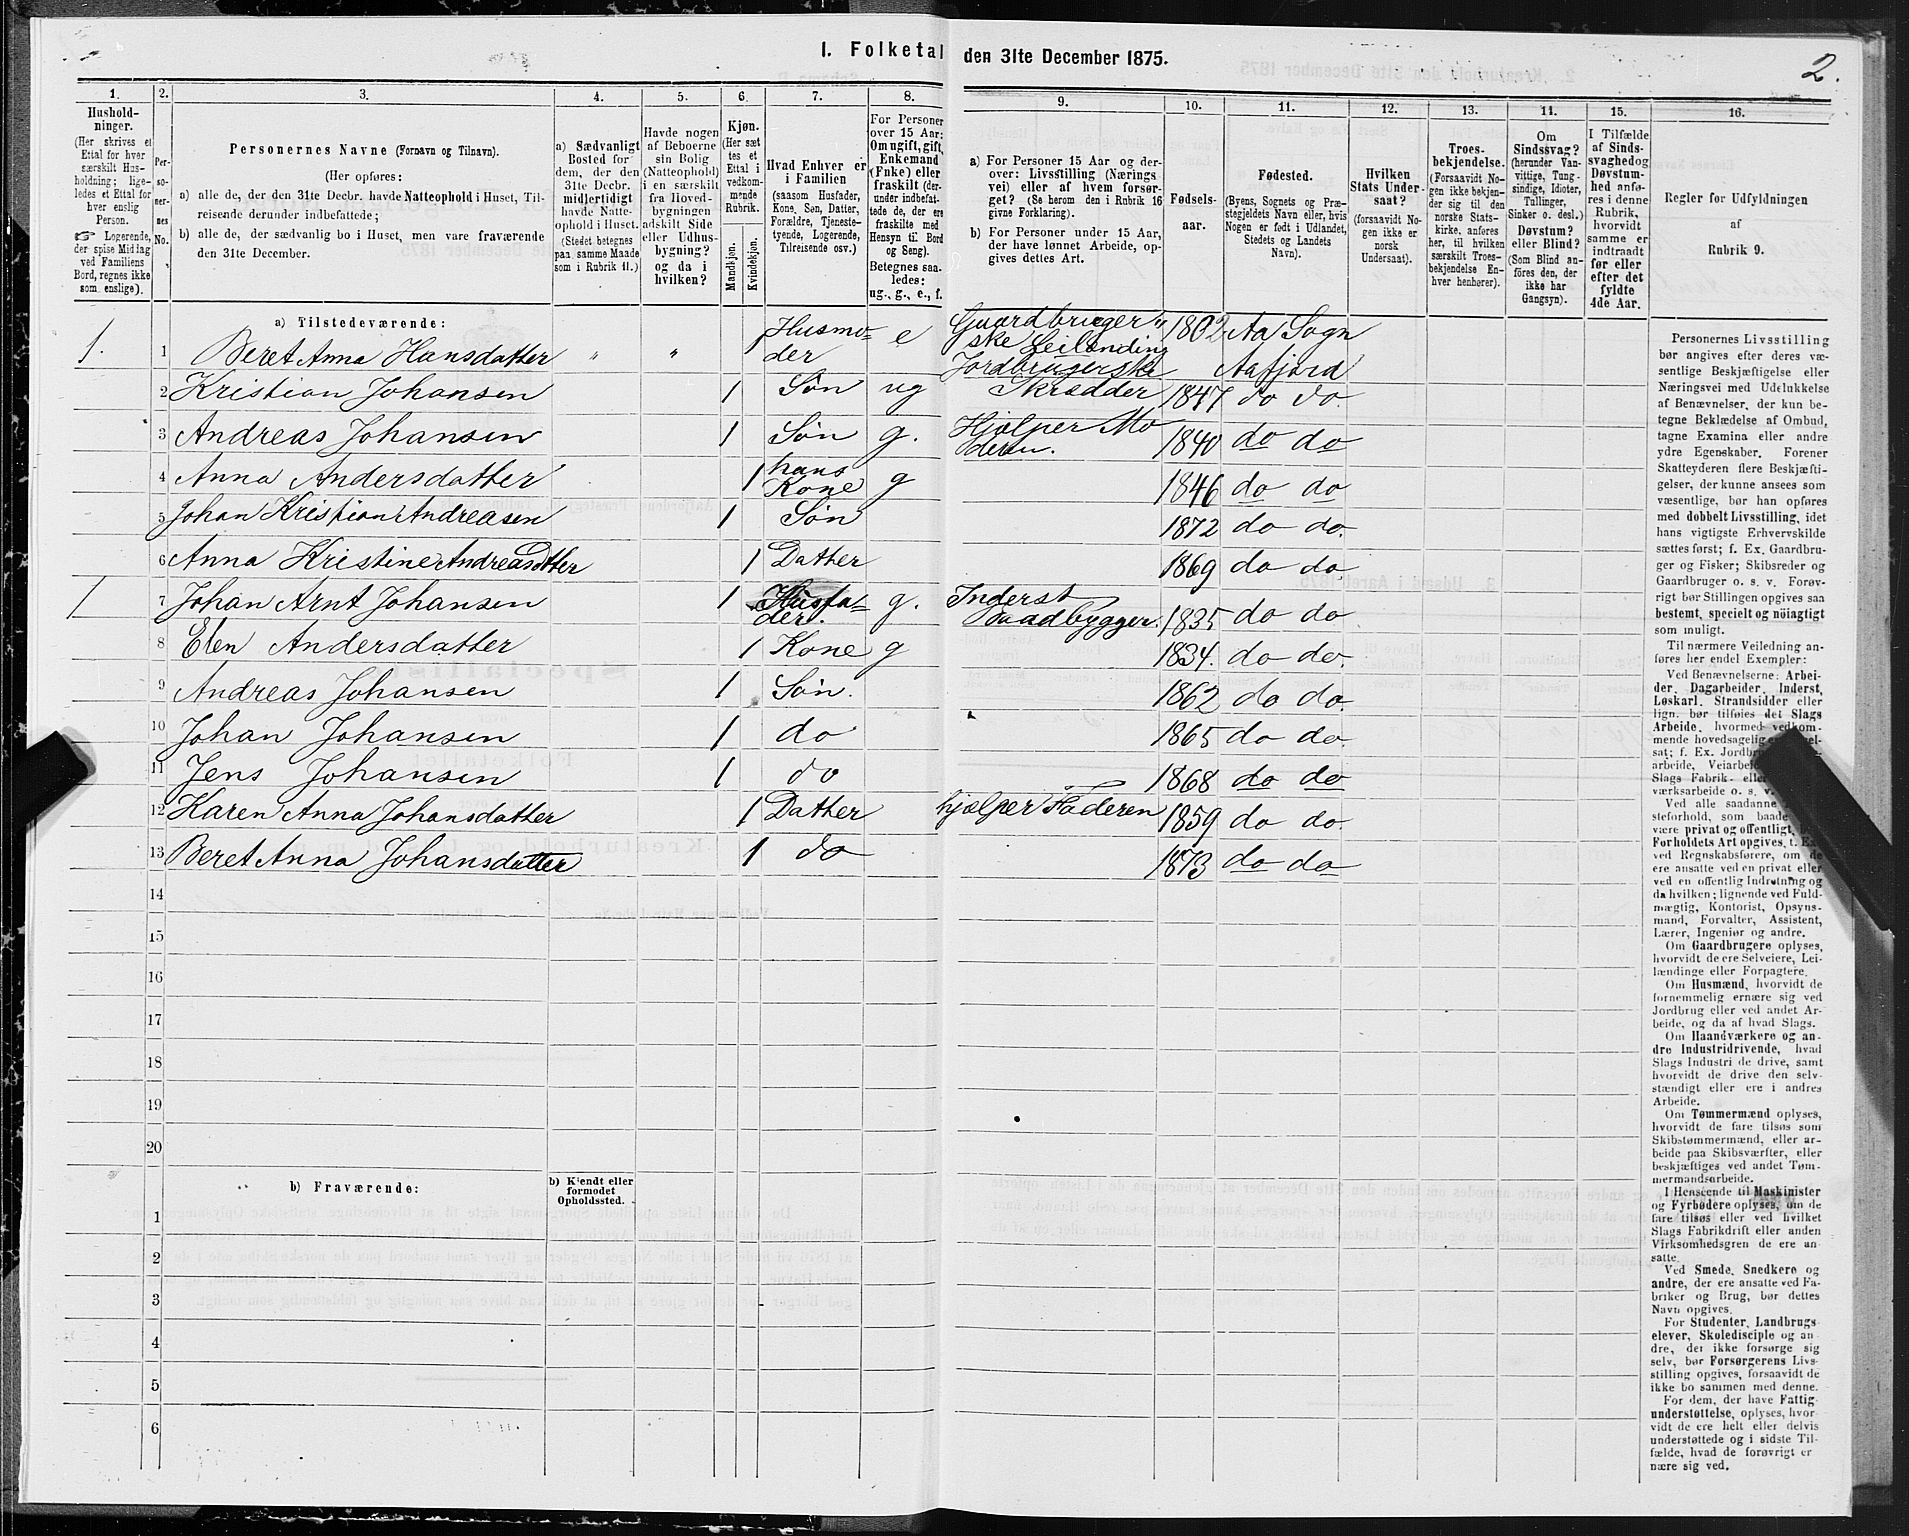 1. Folketal den 31te December 1875.
2.
1.
Hushold-
ninger.
(Her skrives et
Ettal for hver
særskilt Hus-
holdning; lige-
ledes et Ettal for
hver enslig
Person.
Logerende,
der spise Middag
ved Familiens
Bord, regnes ikke
som enslige).
2.
Per-
so-
ner-
nes
No.
3.
Personernes Navne (Fornavn og Tilnavn).
(Her opføres:
a) alle de, der den 31te Decbr. havde Natteophold i Huset, Til-
reisende derunder indbefattede;
b) alle de, der sædvanlig bo i Huset, men vare fraværende
den 31te December.
4.
a) Sædvanligt
Bosted for
dem, der den
31te Decbr.
midlertidigt
havde Natte-
ophold i Huset.
(Stedet betegnes
paa samme Maade
som i Rubrik 11.)
5.
Havde nogen
af Beboerne
sin Bolig
(Natteophold)
i en særskilt
fra Hoved-
bygningen
adskilt Side
eller Udhus-
bygning?
og da i
hvilken?
6.
Kjøn.
(Her sæt-
tes et
Ettal i
vedkom-
mende
Rubrik.
Mandkjøn.
Kvindekjøn.
7.
Hvad Enhver er
i Familien
(saasom Husfader,
Kone, Søn, Datter,
Forældre, Tjeneste-
tyende, Logerende,
Tilreisende osv.)
8.
For Personer
over 15 Aar:
Om ugift, gift,
Enkemand
(Enke) eller
fraskilt (der-
under indbefat-
tede de, der ere
fraskilte med
Hensyn til Bord
og Seng).
Betegnes saa-
ledes:
ug., g., e., f.
9.
a) For Personer 15 Aar og der-
over: Livsstilling (Nærings-
vei) eller af hvem forsør-
get? (Se herom den i Rubrik 16
givne Forklaring).
b) For Personer under 15 Aar,
der have lønnet Arbeide, op-
gives dettes Art.
10.
Fødsels-
aar.
11.
Fødested.
(Byens, Sognets og Præ-
stegjeldets Navn eller, hvis
Nogen er født i Udlandet,
Stedets og Landets
Navn).
12.
Hvilken
Stats Under-
saat?
(forsaavidt No-
gen ikke er
norsk
Undersaat).
13.
Troes-
bekjendelse.
(Forsaavidt No-
gen ikke bekjen-
der sig til den
norske Stats-
kirke, anføres
her, til hvilken
særskilt Troes-
bekjendelse En-
hver henhører).
14.
Om
Sindssvag?
(herunder Van-
vittige, Tung-
sindige, Idioter,
Tullinger,
Sinker o. desl.)
Døvstum?
eller Blind?
(Som Blind an-
føres den, der
ikke har
Gangsyn).
15.
I Tilfælde
af Sinds-
svaghed og
Døvstum-
hed anfø-
res i denne
Rubrik,
hvorvidt
samme er
indtraadt
før eller
efter det
fyldte
4de Aar.
16.
Regler for Udfyldningen
af
Rubrik 9.
a) Tilstedeværende:
1. 1 Beret Anna Hansdatter " " 1 Husmo-
der e Gaardbruger-
ske Leilending
Jordbrugerske 1802 Aa Sogn
Aafjord
2 Kristian Johansen 1 Søn ug Skrædder 1847 do do.
3 Andreas Johansen 1 Søn g. Hjælper Mo
deren. 1840 do do
4 Anna Andersdatter 1 hans
Kone g 1846 do do
5 Johan Kristian Andreasen 1 Søn 1872 do do.
6 Anna Kristine Andreasdtter 1 Datter 1869 do do
1 7 Johan Arnt Johansen 1 Husfa-
der. g. Inderst
Baadbygger. 1835 do do
8 Elen Andersdatter 1 Kone g 1834. do do.
9 Andreas Johansen 1 Søn. 1862 do do.
10 Johan Johansen 1 do 1865 do do.
11 Jens Johansen 1 do 1868 do do
12 Karen Anna Johansdatter 1 Datter hjælper Faderen 1859 do do.
13 Beret Anna Johansdatter 1 do 1873 do do
14
15
16
17
18
19
20
b) Fraværende:
b) Kjendt eller
formodet
Opholdssted.
1
2
3
4
5
6
Personernes Livsstilling
bør angives efter deres væ-
sentlige Beskjæftigelse eller
Næringsvei med Udelukkelse
af Benævnelser, der kun be-
tegne Beklædelse af Ombud,
tagne Examina eller andre
ydre Egenskaber. Forener
Skatteyderen flere Beskjæfti-
gelser, der kunne ansees som
væsentlige, bør han opføres
med dobbelt Livsstilling, idet
hans vigtigste Erhvervskilde
sættes først; f. Ex. Gaardbru-
ger og Fisker; Skibsreder og
Gaardbruger o. s. v. Forøv-
rigt bør Stillingen opgives saa
bestemt, specielt og nøiagtigt
som muligt.
Til nærmere Veiledning an-
føres her endel Exempler:
Ved Benævnelserne: Arbei-
der, Dagarbeider, Inderst,
Løskarl, Strandsidder eller
lign. bør tilføies det Slags
Arbeide, hvormed vedkom-
mende hovedsagelig er
sat; f. Ex. Jordbru
arbeide, Veiarbei
Slags Fabrik- elle
værksarbeide o. s. v.
Ved alle saadanne
steforhold, som baade
være privat og offentligt,
Forholdets Art opgives, f. Ex.
ved Regnskabsførere, om de
ere ansatte ved en privat eller
ved en offentlig Indretning og
da hvilken; lignende ved Fuld-
mægtig, Kontorist, Opsyns-
mand, Forvalter, Assistent,
Lærer, Ingeniør og andre.
Om Gaardbrugere oplyses,
hvorvidt de ere Selveiere, Lei-
lændinge eller Forpagtere.
Om Husmænd, hvorvidt de
fornemmelig ernære sig ved
Jordbrug eller ved andet Ar-
beide, og da af hvad Slags.
Om Haandværkere og an-
dre Industridrivende, hvad
Slags Industri de drive, samt
hvorvidt de drive den selv-
stændigt eller ere i andres
Arbeide.
Om Tømmermænd oplyses,
hvorvidt de fare tilsøs som
Skibstømmermænd, eller ar-
beide paa Skibsværfter, eller
beskjæftiges ved andet Tøm-
mermandsarbeide.
I Henseende til Maskinister
og Fyrbødere oplyses, om de
fare tilsøs eller ved hvilket
Slags Fabrikdrift eller anden
Virksomhedsgren de ere an-
satte.
Ved Smede, Snedkere og
andre, der ere ansatte ved Fa-
briker og Brug, bør dettes
Navn opgives.
For Studenter, Landbrugs-
elever, Skoledisciple og an-
dre, der ikke forsørge sig
selv, bør Forsørgerens Livs-
stilling opgives, forsaavidt de
ikke bo sammen med denne.
For dem, der have Fattig-
understøttelse, oplyses, hvor-
vidt de ere helt eller delvis
understøttede og i sidste Til-
fælde, hvad de forøvrigt er-
nære sig ved.